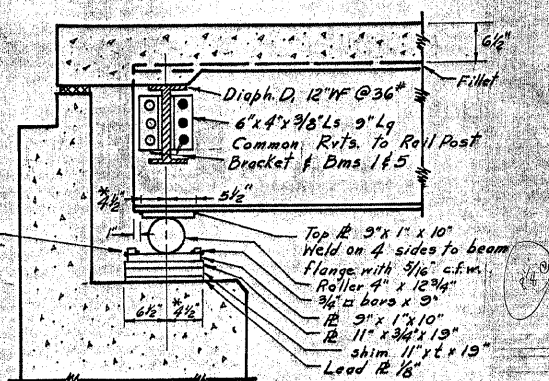 6½"
Fillet
Diaph. D, 12"WF @ 36#
6"x4"x3/8" Ls 9" Lg
Common Rvts. to Rail Post
Bracket & Bms 1 & 5
*4½"
5½"
1"
Top PL 9"x1"x10"
Weld on 4 sides to beam
flange with 5/16" c.f.w.
Roller 4"x12¾"
¾" □ bars x 9"
PL 9"x1"x10"
6½"
*4½"
PL 11"x¾"x19"
shim 11"xtx19"
Lead PL 1/8"